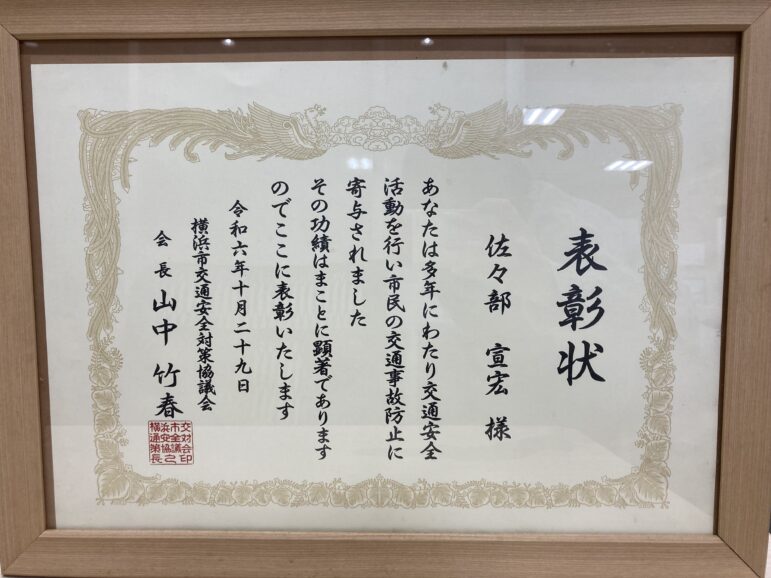 表彰状
佐々部 宣宏 様
あなたは多年にわたり交通安全
活動を行い市民の交通事故防止に
寄与されました
その功績はまことに顕著であります
のでここに表彰いたします
令和六年十月二十九日
横浜市交通安全対策協議会
会長 山中 竹春